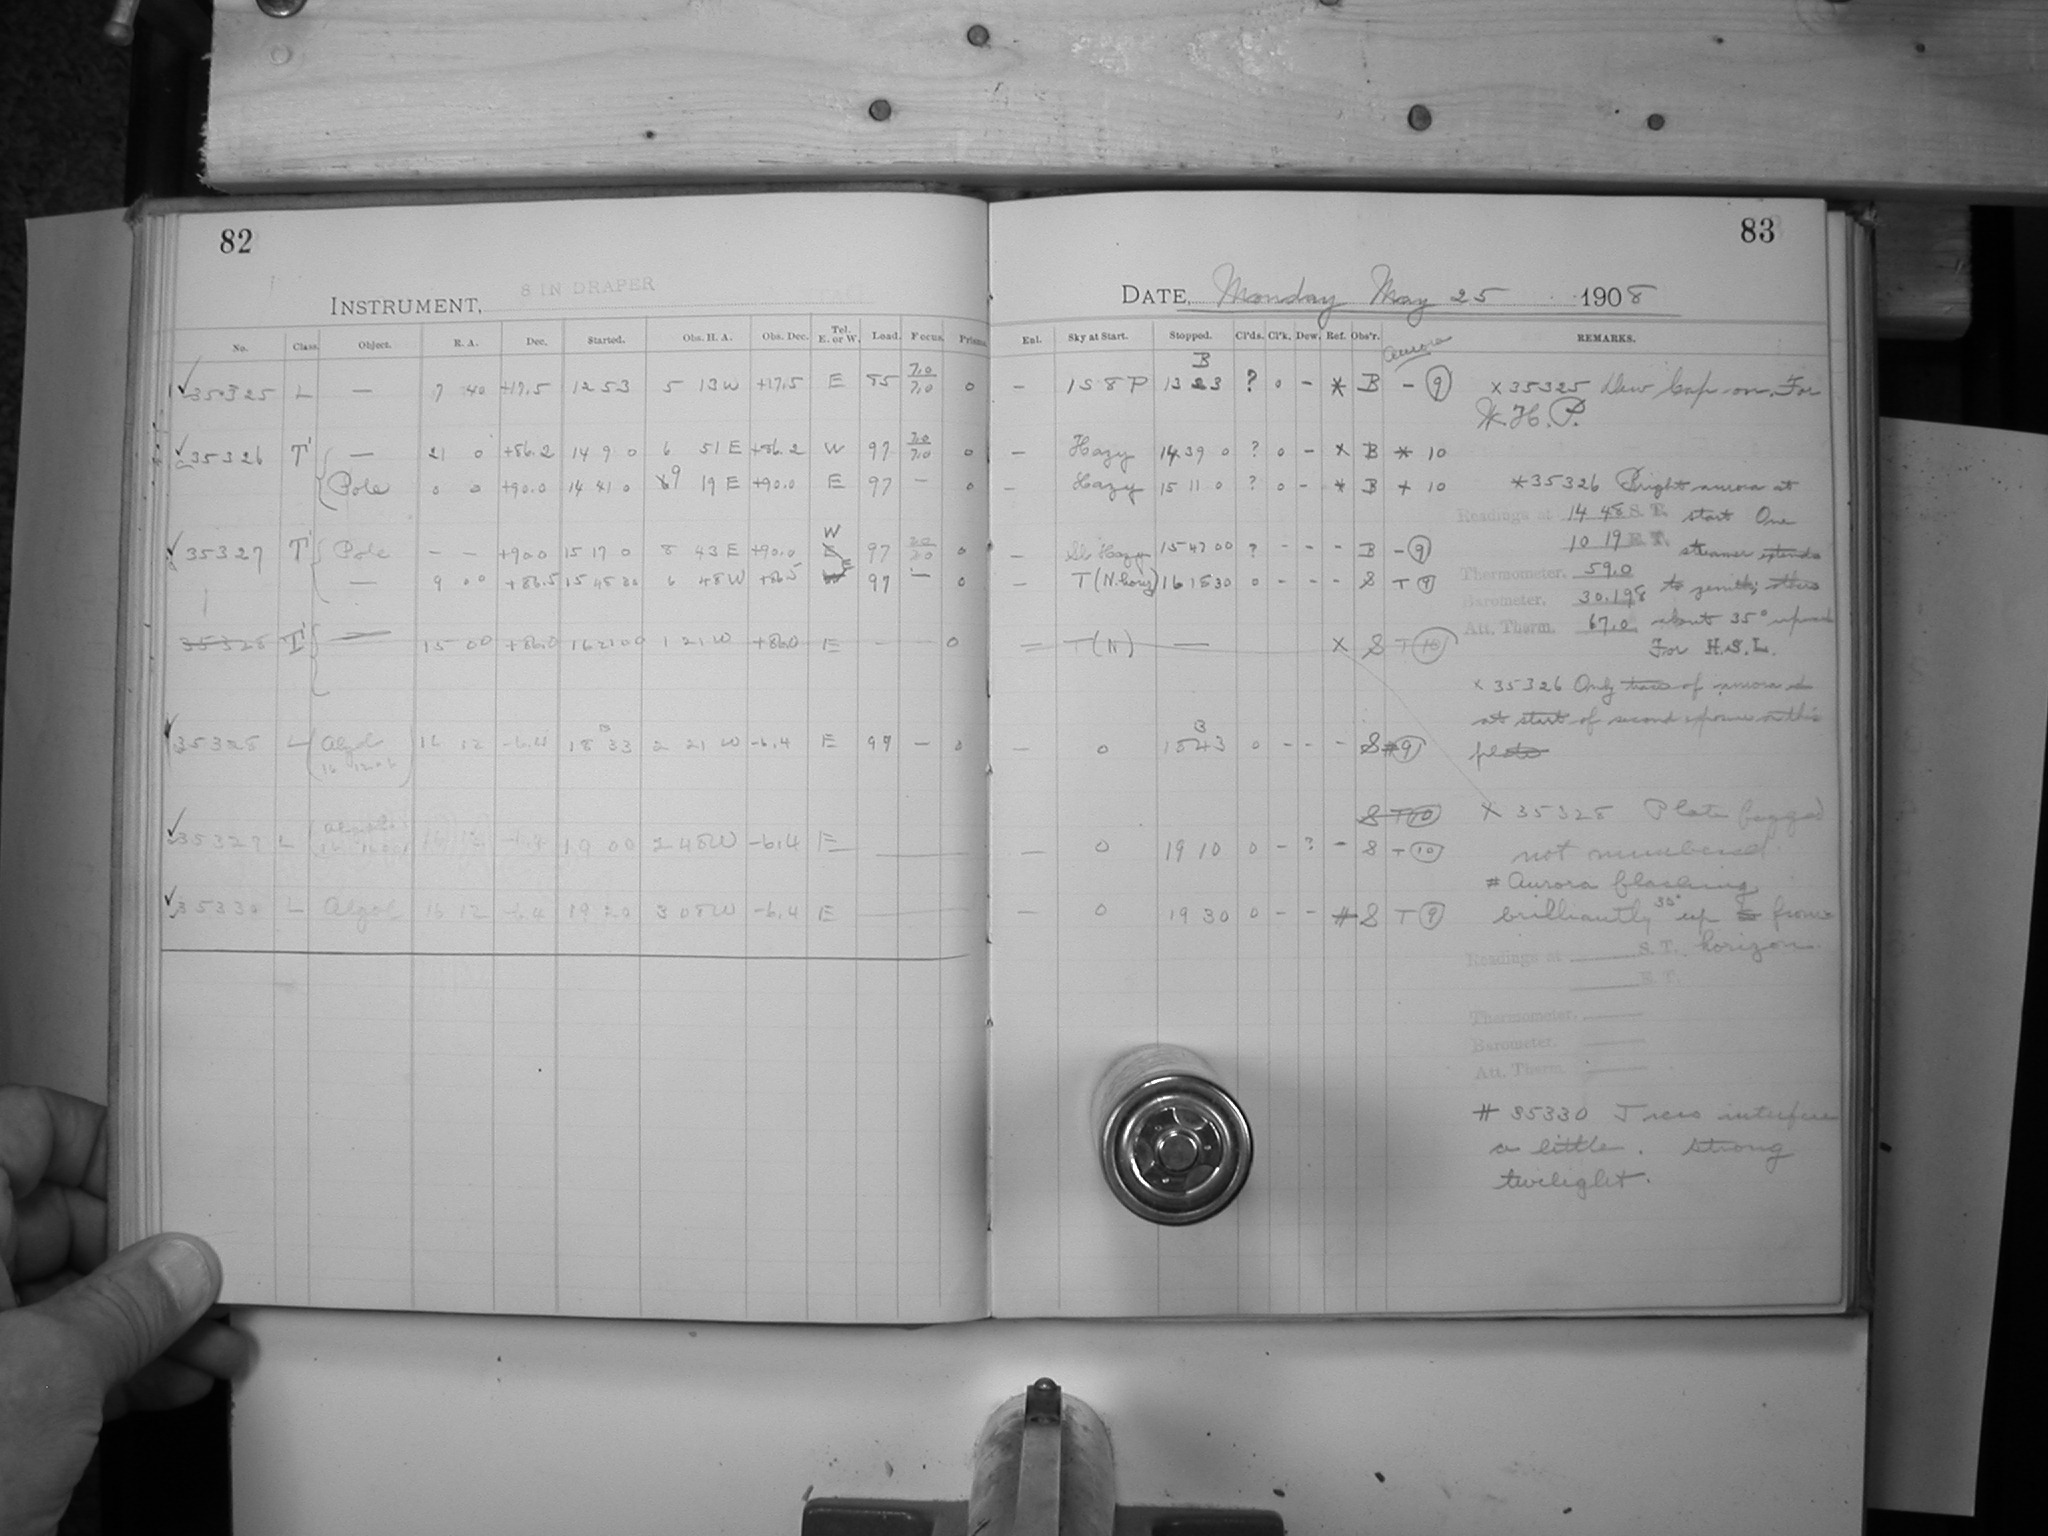 82
8 IN DRAPER
INSTRUMENT,
No. Class. Object. R. A. Dec. Started. Obs. H. A. Obs. Dec. Tel. E. or W. Load. Focus. Prisms.
35325 L — 7 40 +17.5 12 53 5 13 W +17.5 E 85 7.0 7.0 0
35326 T' — 21 0 +86.2 14 9 0 6 51 E +86.2 W 97 7.0 7.0 0
Pole 0 0 +90.0 14 41 0 19 E +90.0 E 97 — 0
35327 T' Pole — — +90.0 15 17 0 8 43 E +90.0 W 97 0
— 9 00 +86.5 15 45 30 6 48 W +86.5 E 97 — 0
35328 T' — 15 00 +86.0 16 21 00 1 21 W +86.0 E — — 0
35328 L 16 12 -6.4 18 33 2 21 W -6.4 E 97 — 0
35329 L 16 12 -6.4 19 00 2 48 W -6.4 E
35330 L 16 12 -6.4 19 20 3 08 W -6.4 E
83
DATE, Monday May 25 1908
Enl. Sky at Start. Stopped. Cl'ds. Cl'k. Dew. Ref. Obs'r. Aurora REMARKS.
— 1S8P 13 23 B ? 0 - * B - 9
— Hazy 14 39 0 ? 0 - x B * 10
— Hazy 15 11 0 ? 0 - * B + 10
— Sl Hazy 15 47 00 ? - - - B - 9
— T (N. horiz) 16 15 30 0 - - - S T 9
— T (N) — x S T 10
— 0 18 43 B 0 - - - S # 9
S T 10
— 0 19 10 0 - ? - S T 10
— 0 19 30 0 - - # S T 9
x 35325 Dew Cap on. For
W. H. P.
*35326 Bright aurora at
Readings at 14 48 S. T. start One
10 19 E. T. streamer extends
Thermometer. 59.0
Barometer. 30.198 to zenith; others
Att. Therm. 67.0 about 35° upward
For H.S.L.
x 35326 Only trace of aurora
at start of second exposure on this
plate
x 35328 Plate fogged
not numbered
# Aurora flashing
brilliantly 35° up from
Readings at S. T. horizon.
E. T.
Thermometer.
Barometer.
Att. Therm.
# 35330 Trees interfere
a little. Strong
twilight.